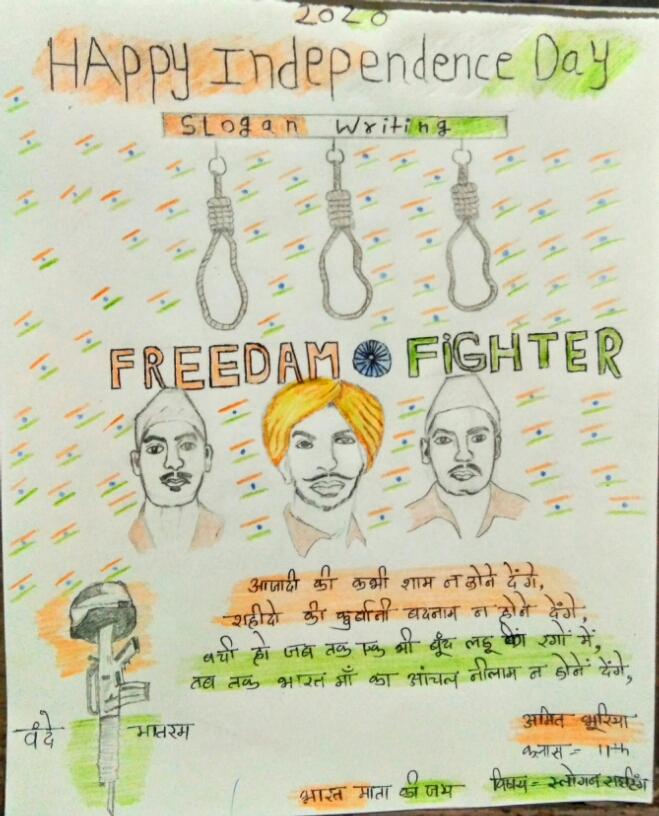 2020
HAppy Independence Day
Slogan Writing
FREEDAM FiGHTER
आजादी की कभी शाम न होने देंगे,
शहीदो की कुर्बानी बदनाम न होने देंगे,
बची हो जब तक एक भी बूँद लहू की रगों में,
तब तक भारत माँ का आंचल नीलाम न होने देंगे,
वंदे मातरम
अमित भूरिया
क्लास = 11th
भारत माता की जय विषय = स्लोगन राइटिंग